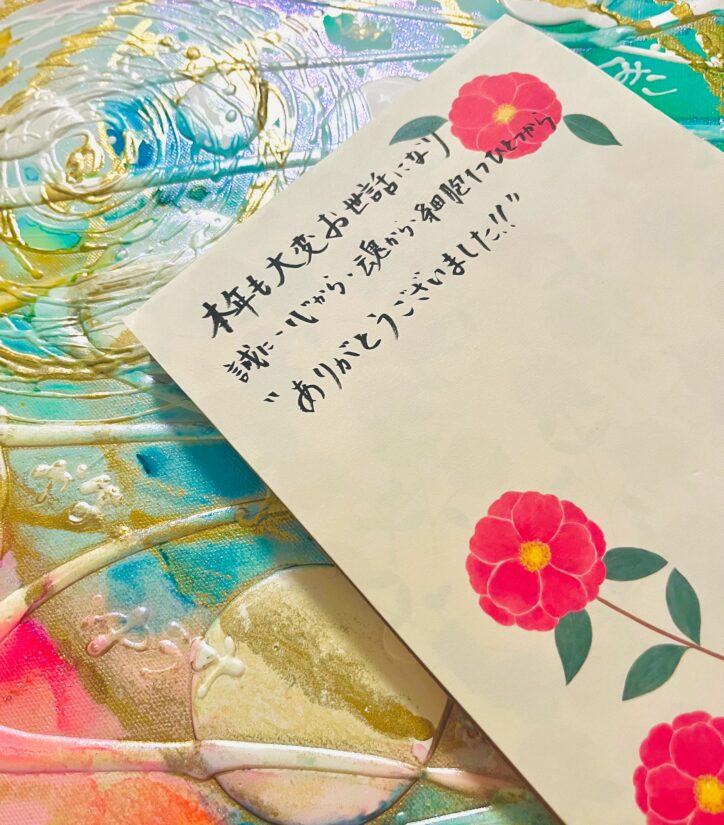 本年も大変お世話になり
誠に、心から、魂から、細胞1つひとつから
"ありがとうございました!!"